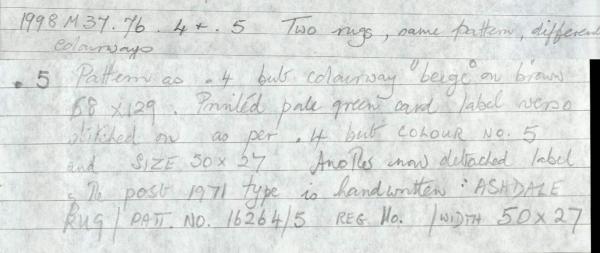 1998 M 37. 76 . 4 + . 5 Two rugs, same pattern, different
colourways
. 5 Pattern as . 4 but colourway "beige" on brown
68 x 129. Printed pale green card label verso
stitched on as per . 4 but COLOUR NO. 5
and SIZE 50 x 27 Another now detached label
of the post 1971 type is handwritten : ASHDALE
RUG / PATT. NO. 16264/5 REG No. / WIDTH 50 x 27